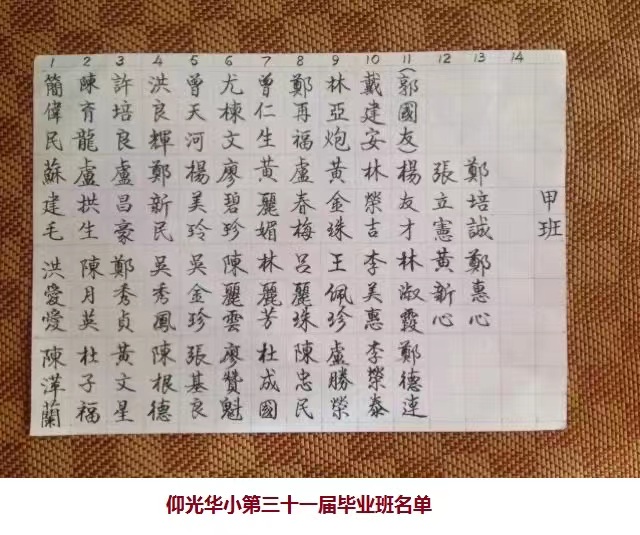 1 2 3 4 5 6 7 8 9 10 11 12 13 14
簡偉民 蘇建毛 洪愛愛 陳萍蘭
陳育龍 盧拱生 陳月英 杜子福
許培良 盧昌豪 鄭秀貞 黃文星
洪良輝 鄭新民 吳秀鳳 陳根德
曾天河 楊美玲 吳金珍 張基良
尤棟文 廖碧珍 陳麗雲 廖贊魁
曾仁生 黃麗媚 林麗芳 杜成國
鄭再福 盧春梅 呂麗珠 陳忠民
林亞炮 黃金珠 王佩珍 盧勝榮
戴建安 林榮吉 李美惠 李榮泰
(郭國友) 楊友才 林淑霞 鄭德連
張立憲 黃新心
鄭培誠 鄭惠心
甲班
仰光华小第三十一届毕业班名单